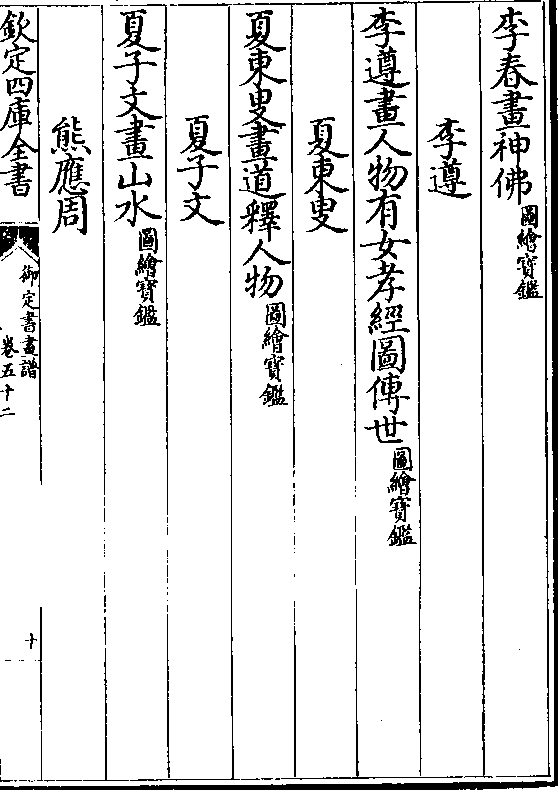 李春畫神佛圖繪寶鑑
李遵
李遵畫人物有女孝經圖傳世圖繪寶鑑
夏東叟
夏東叟畫道釋人物圖繪寶鑑
夏子文
夏子文畫山水圖繪寶鑑
熊應周
欽定四庫全書
御定書畫譜
卷五十二
十